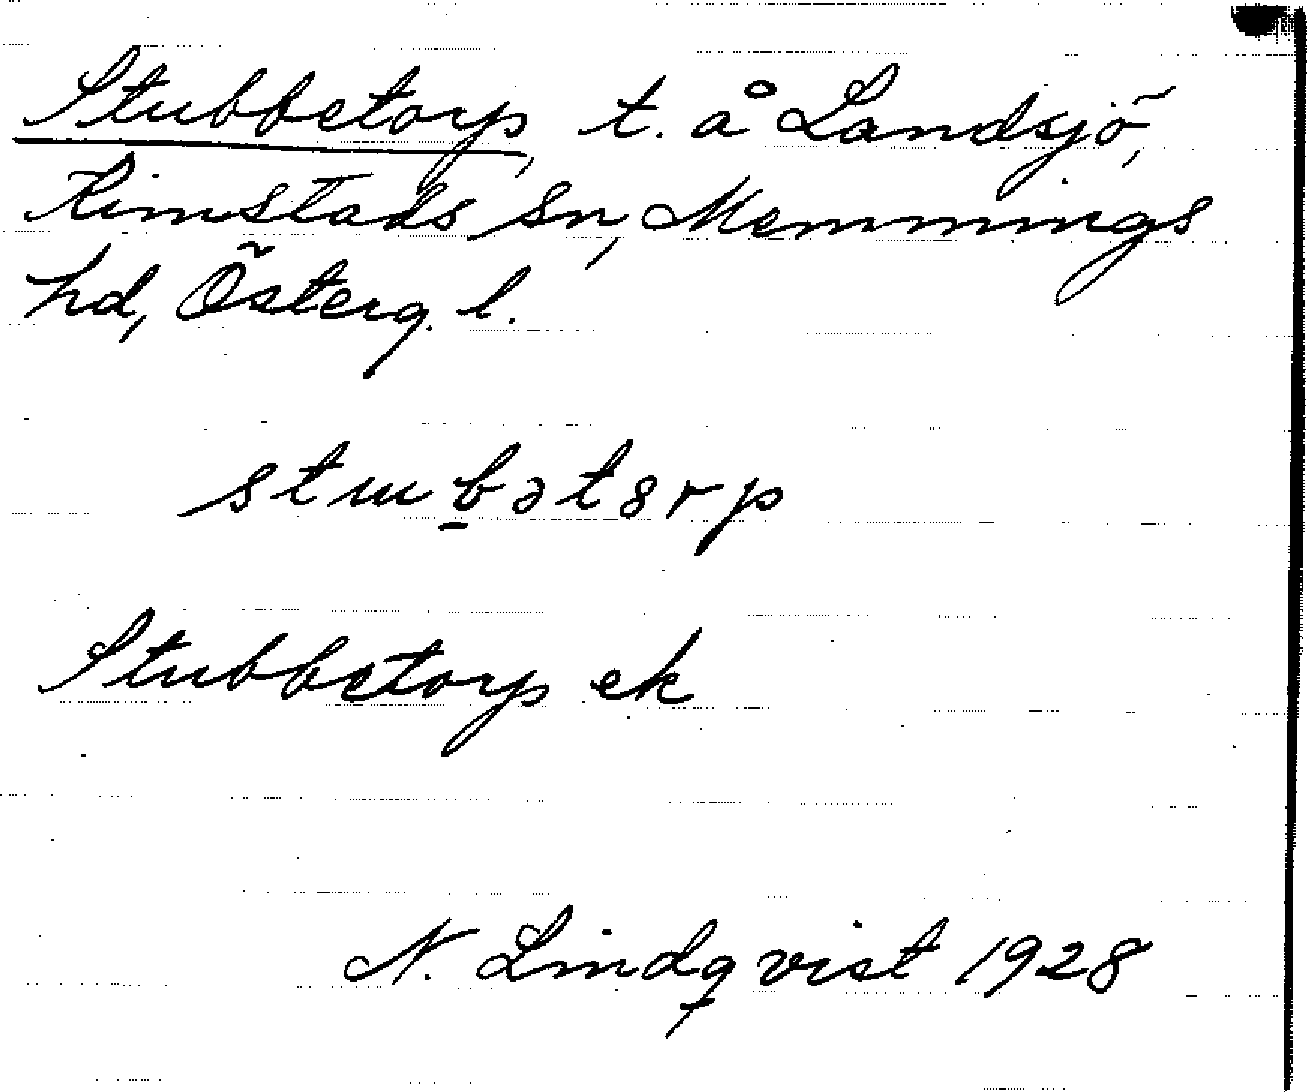 Stubbetorp, t. å Landsjö,
Kimstads sn, Memmings
hd, Österg. l.
stɯb̲ətȣrp
Stubbetorp ek
N. Lindqvist 1928